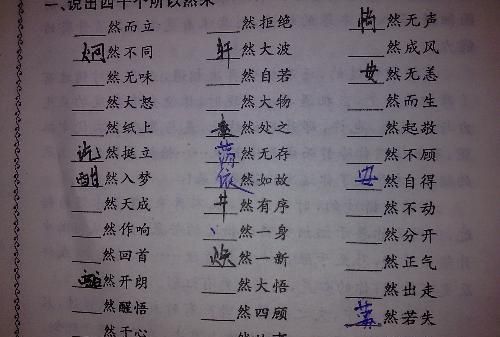 一、说出四十个所以然来
___然而立 ___然拒绝 悄然无声
炯然不同 轩然大波 ___然成风
___然无味 ___然自若 安然无恙
___然大怒 ___然大物 ___然而生
___然纸上 然处之 ___然起敬
屹然挺立 荡然无存 ___然不顾
酣然入梦 依然如故 安然自得
___然天成 井然有序 ___然不动
___然作响 ___然一身 ___然分开
___然回首 焕然一新 ___然正气
然开朗 ___然大悟 ___然出走
___然醒悟 ___然四顾 然若失
___然于心